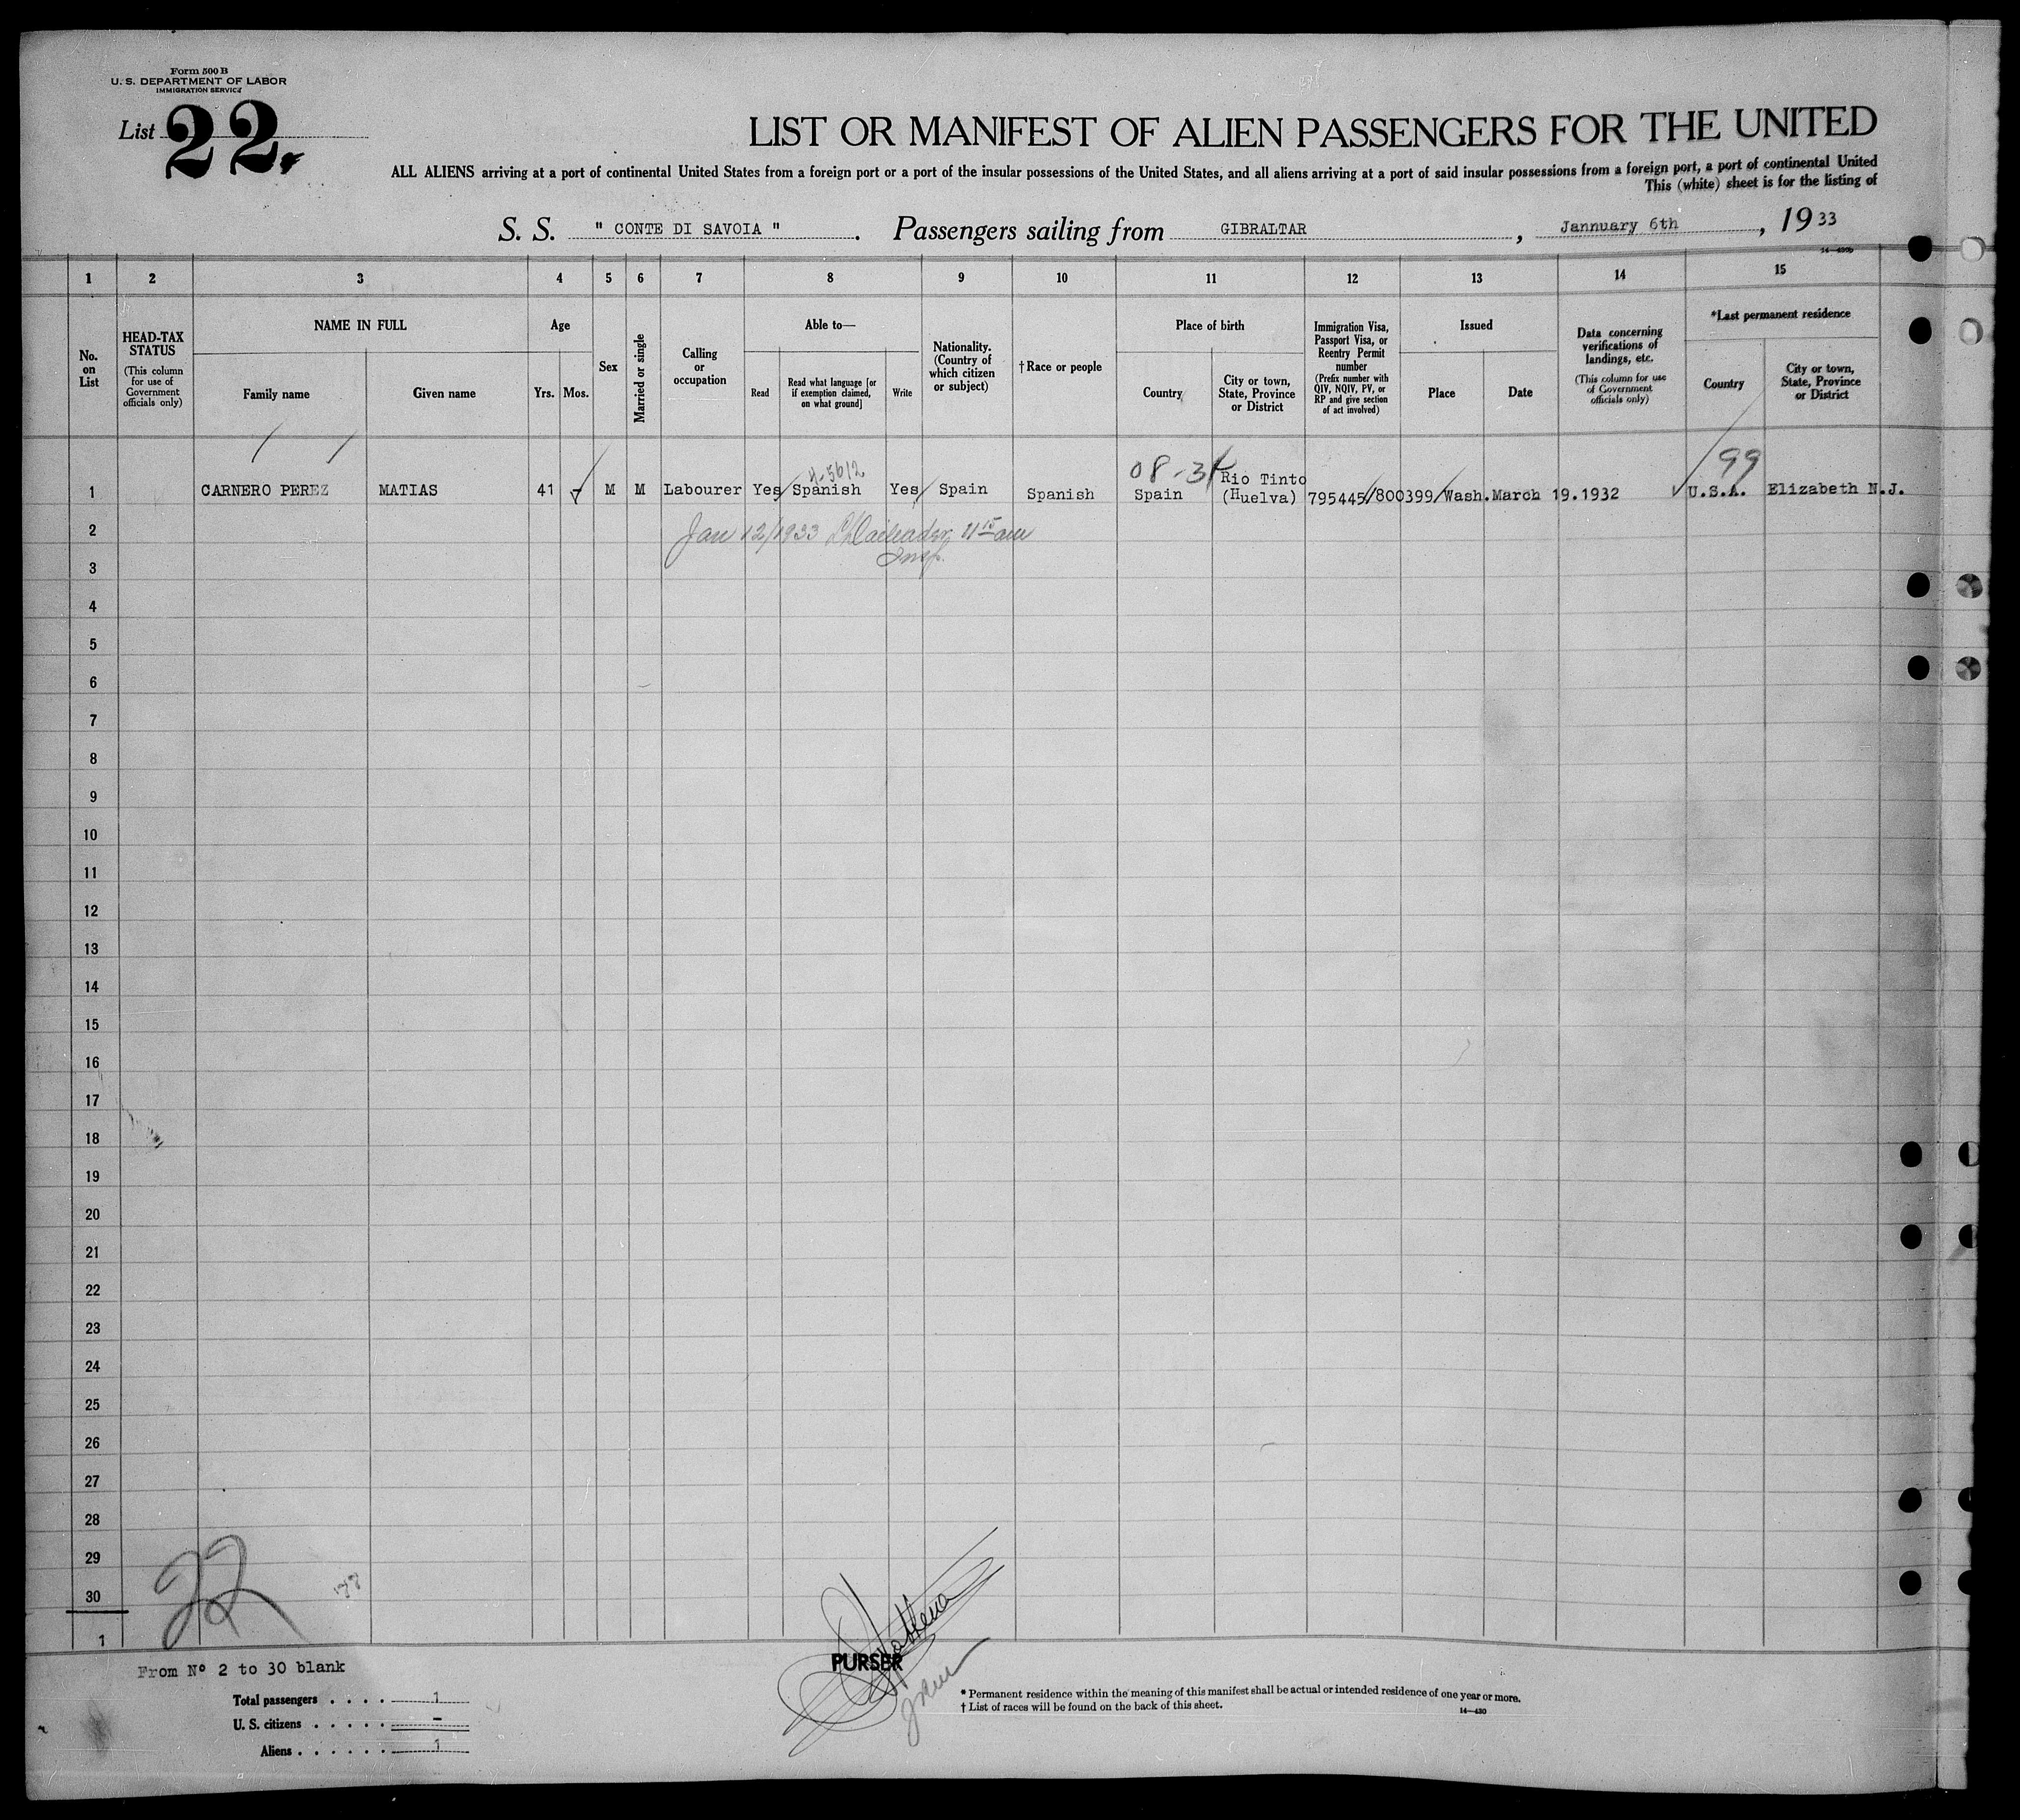 Form 500 B
U. S. DEPARTMENT OF LABOR
IMMIGRATION SERVICE
List 22.
LIST OR MANIFEST OF ALIEN PASSENGERS FOR THE UNITED
ALL ALIENS arriving at a port of continental United States from a foreign port or a port of the insular possessions of the United States, and all aliens arriving at a port of said insular possessions from a foreign port, a port of continental United
This (white) sheet is for the listing of
S. S. " CONTE DI SAVOIA " . Passengers sailing from GIBRALTAR , Jannuary 6th , 19 33
1 2 3 4 5 6 7 8 9 10 11 12 13 14 15
No. on List
HEAD-TAX STATUS
(This column for use of Government officials only)
NAME IN FULL
Family name
Given name
Age
Yrs. Mos.
Sex
Married or single
Calling or occupation
Able to—
Read
Read what language [or if exemption claimed, on what ground]
Write
Nationality. (Country of which citizen or subject)
†Race or people
Place of birth
Country
City or town, State, Province or District
Immigration Visa, Passport Visa, or Reentry Permit number
(Prefix number with QIV, NQIV, PV, or RP and give section of act involved)
Issued
Place
Date
Data concerning verifications of landings, etc.
(This column for use of Government officials only)
*Last permanent residence
Country
City or town, State, Province or District
08-31 99
1 CARNERO PEREZ MATIAS 41 - M M Labourer Yes Spanish Yes Spain Spanish Spain Rio Tinto (Huelva) 795445/800399/Wash.March 19.1932 U.S.A. Elizabeth N.J.
2 Jan 12/1933 11 15 am
3 Insp.
4
5
6
7
8
9
10
11
12
13
14
15
16
17
18
19
20
21
22
23
24
25
26
27
28
29
30
1
22
From Nº 2 to 30 blank
Total passengers . . . . 1
U. S. citizens . . . . . -
Aliens . . . . . . 1
PURSER
* Permanent residence within the meaning of this manifest shall be actual or intended residence of one year or more.
† List of races will be found on the back of this sheet.
14—430